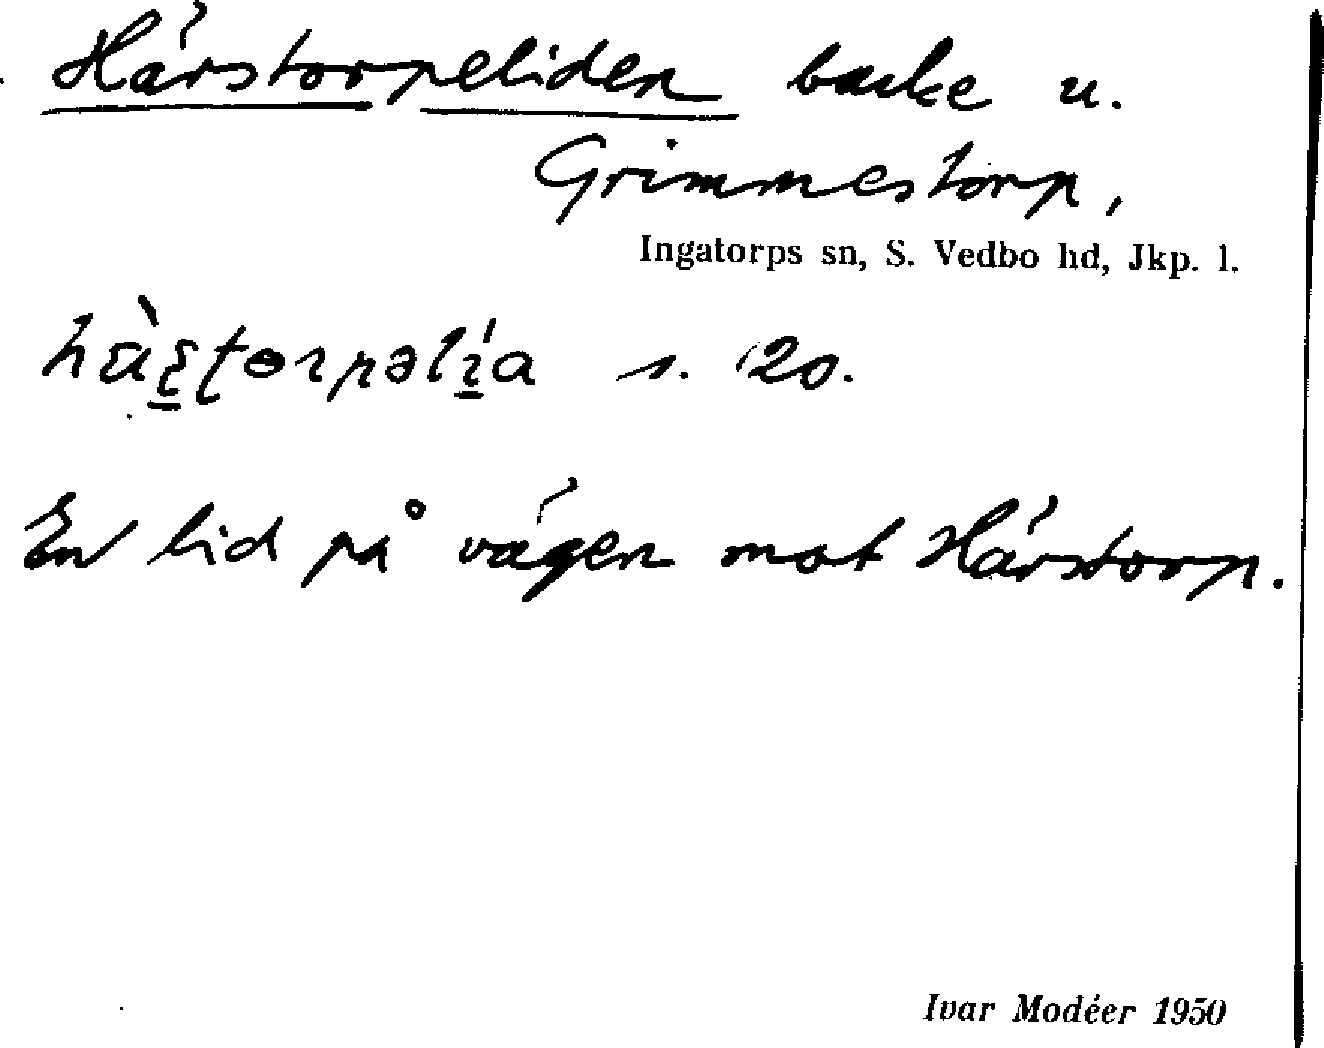 Härstorpeliden backe u.
Grimmestorp,
Ingatorps sn, S. Vedbo hd, Jkp. l.
s. 20.
En lid på vägen mot Härstorp.
Ivar Modéer 1950